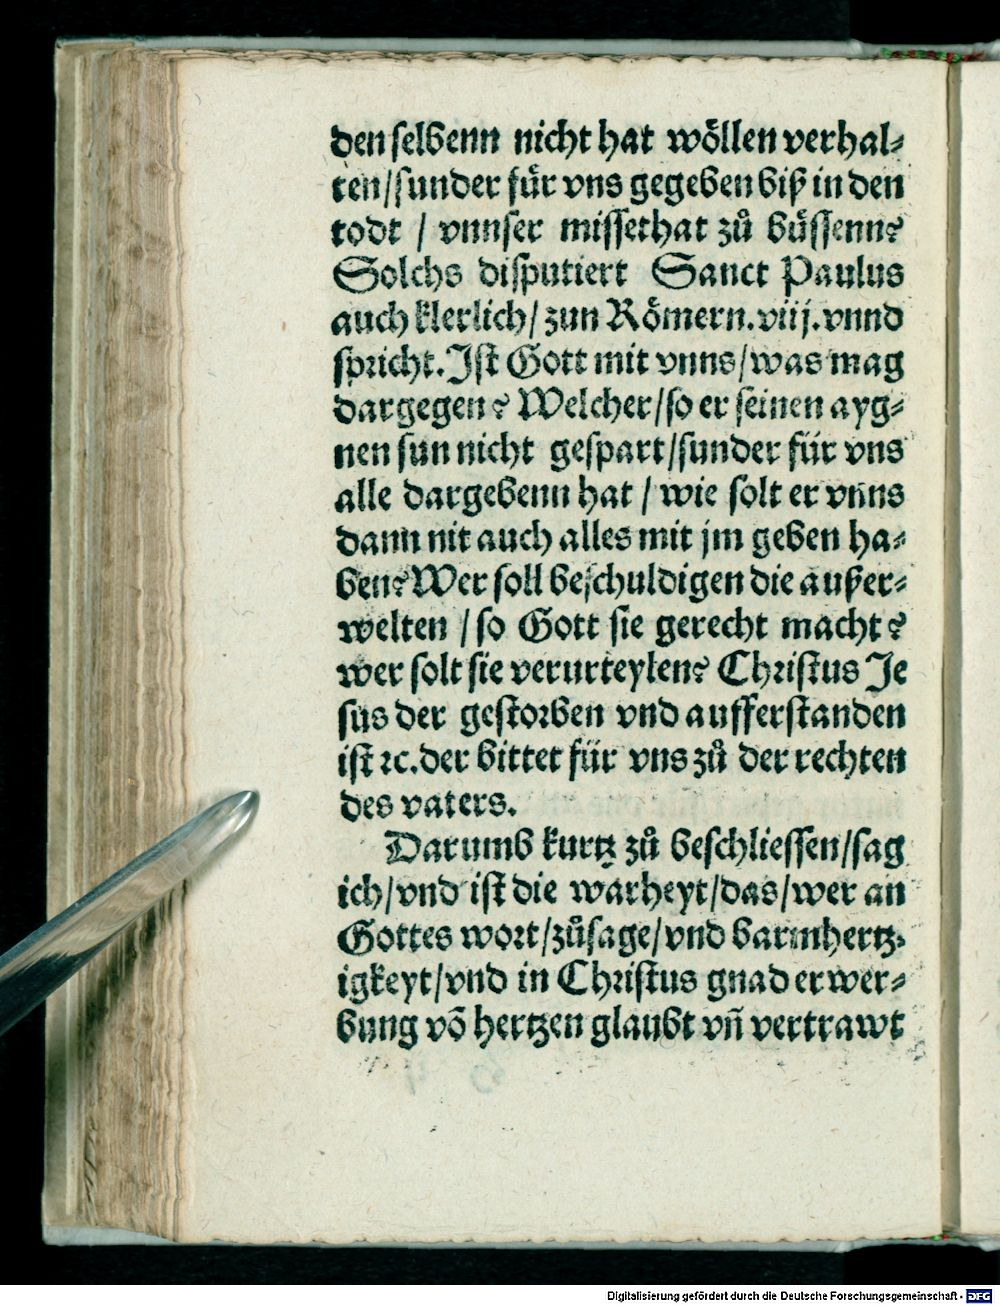 den selbenn nicht hat wöllen verhal⸗
ten/sunder für vns gegeben biß in den
todt / vnnser missethat zů büssenn?
Solchs disputiert Sanct Paulus
auch klerlich/ zun Römern.viij.vnnd
spricht.Ist Gott mit vnns/was mag
dargegen? Welcher/so er seinen ayg⸗
nen sun nicht gespart/sunder für vns
alle dargebenn hat / wie solt er vnns
dann nit auch alles mit jm geben ha⸗
ben?Wer soll beschuldigen die außer⸗
welten / so Gott sie gerecht macht?
wer solt sie verurteylen? Christus Je
sus der gestorben vnd aufferstanden
ist ꝛc.der bittet für vns zů der rechten
des vaters.
Darumb kurtz zů beschliessen/sag
ich/vnd ist die warheyt/das/wer an
Gottes wort/zůsage/vnd barmhertz⸗
igkeyt/vnd in Christus gnad erwer⸗
bung vō hertzen glaubt vñ vertrawt
Digitalisierung gefördert durch die Deutsche Forschungsgemeinschaft - DFG